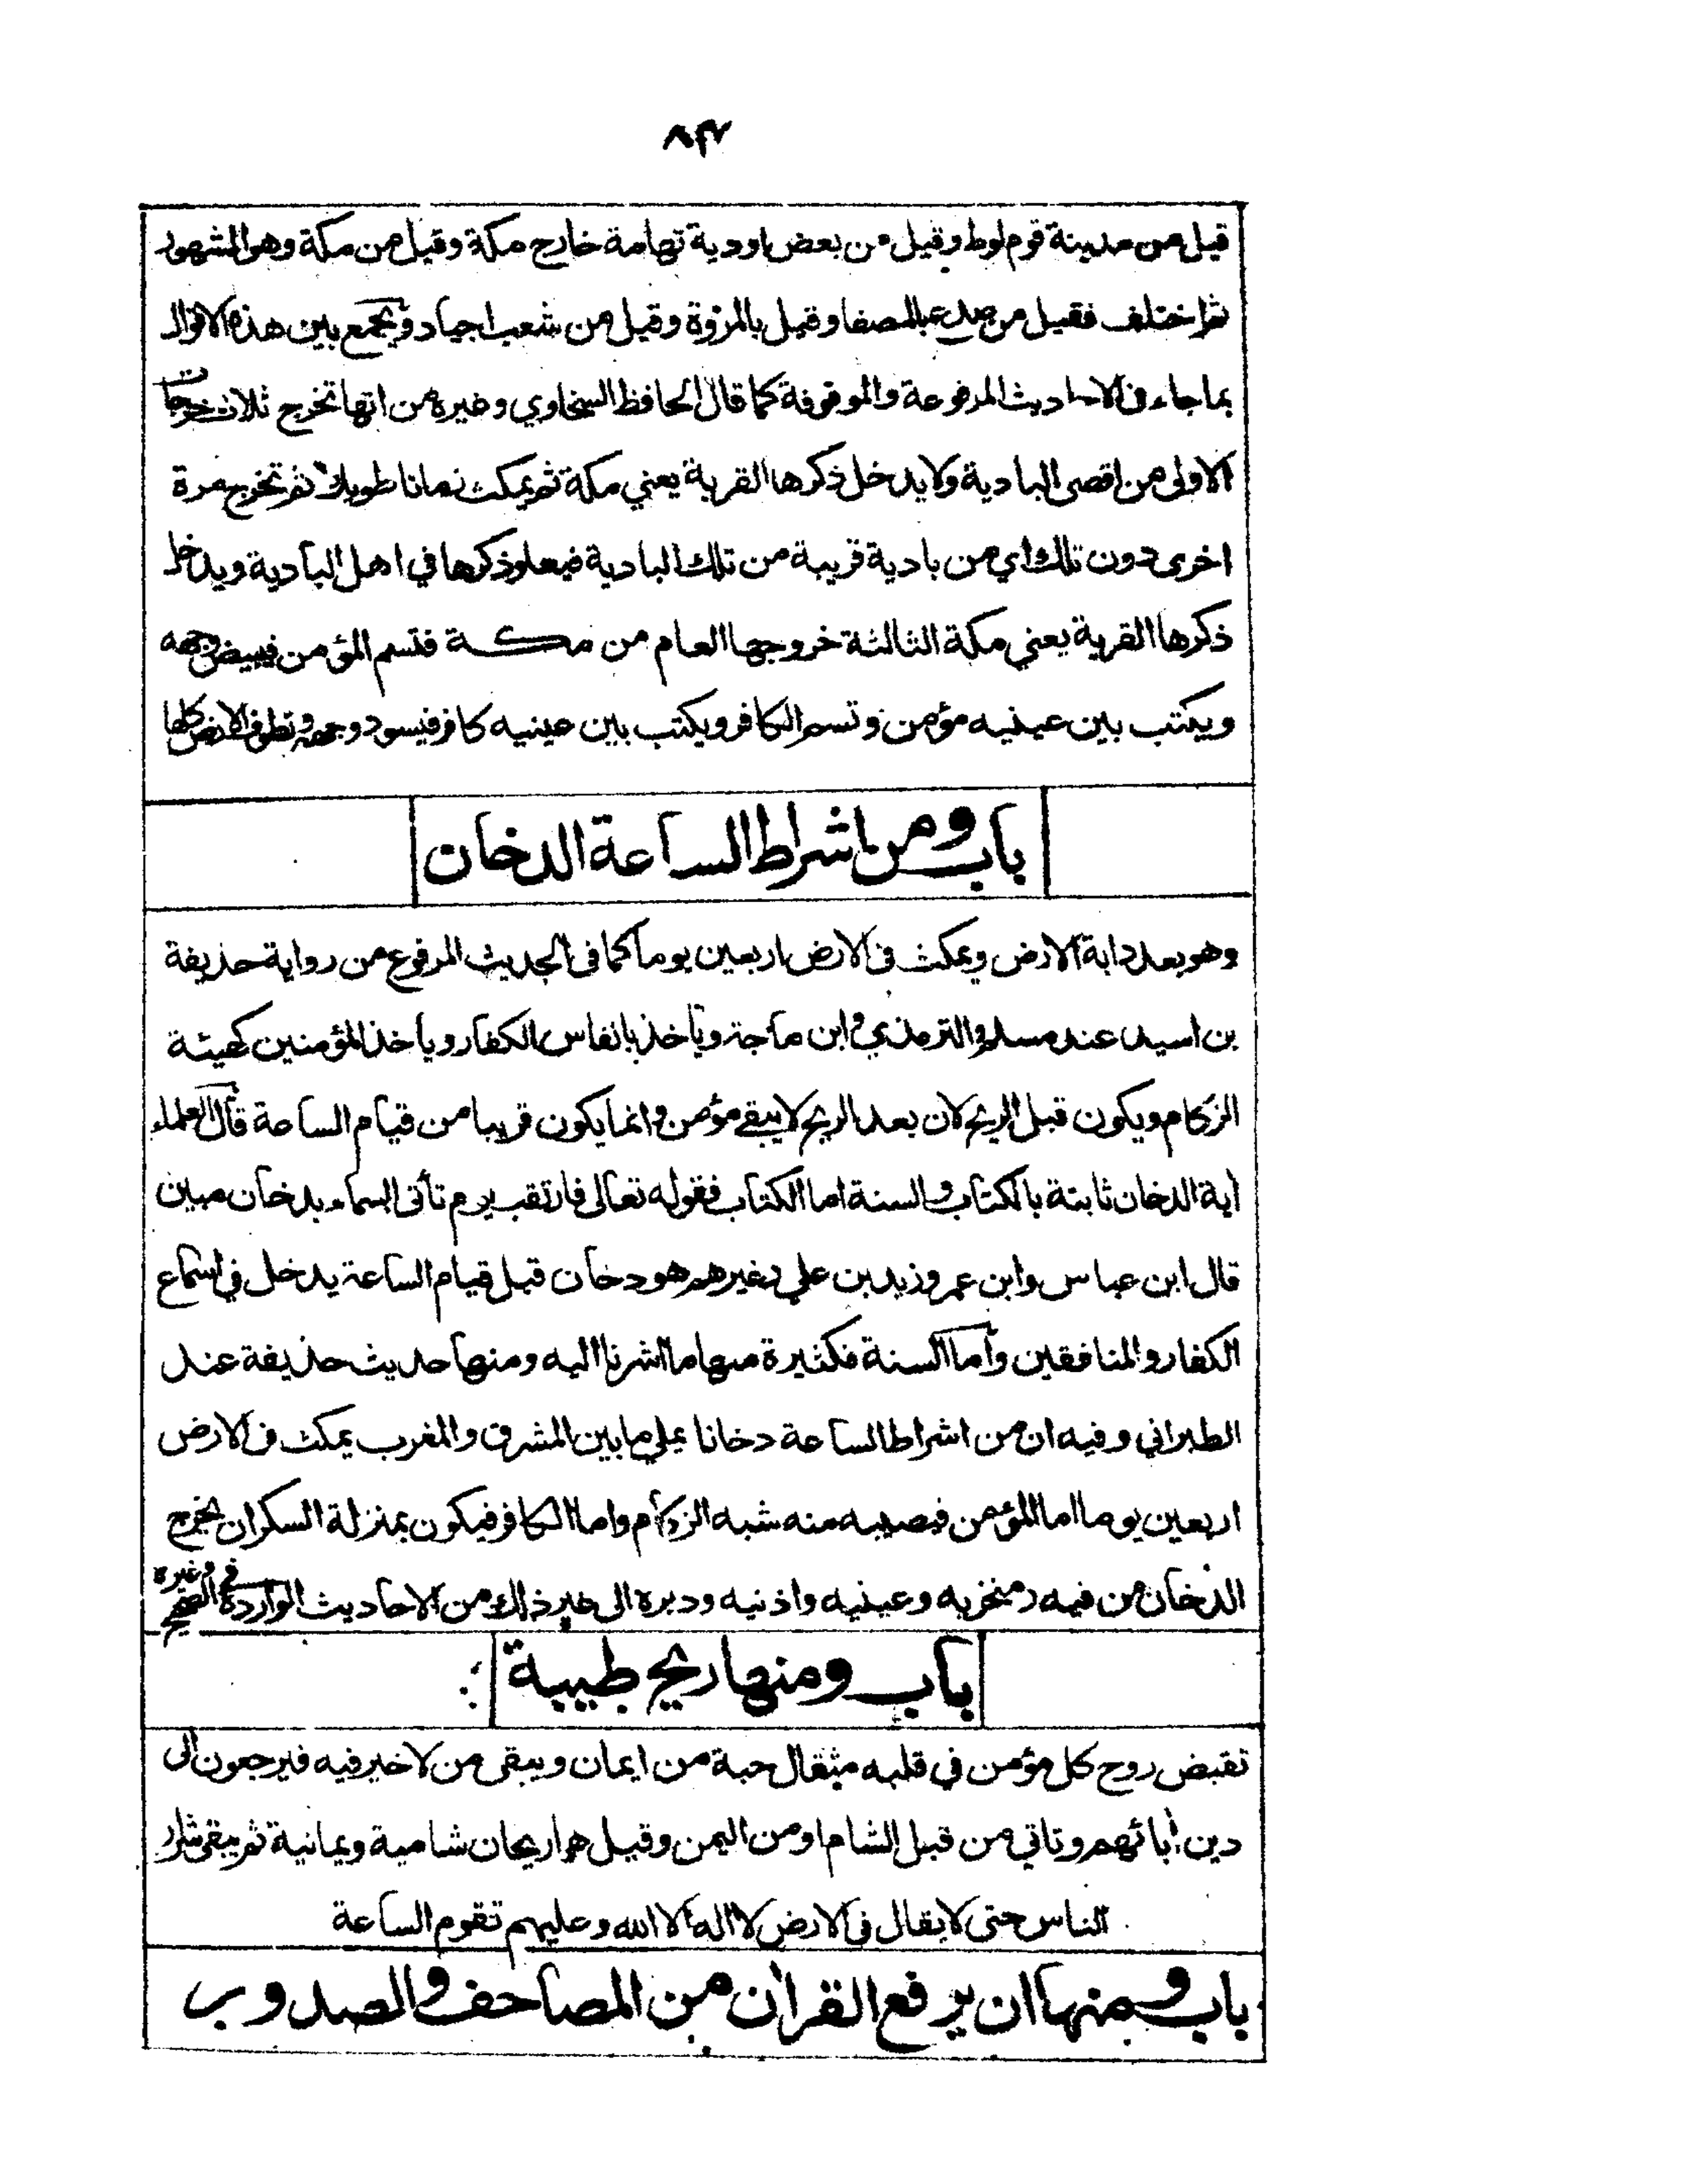 ٨٣٧
قيل من مدينة قوم لوط وقيل من بعض اودية تهامة خارج مكة وقيل من مكة وهو المشهور
ثم اختلف فقيل من صدع بالصفا وقيل بالمروة وقيل من شعب اجياد ويجمع بين هذه الاقوال
بما جاء في الاحاديث المرفوعة والموقوفة كما قال الحافظ السخاوي وغيره من انها تخرج ثلاث خرجات
الاولى من اقصى البادية ولا يدخل ذكرها القرية يعني مكة ثم يمكث زمانا طويلا ثم تخرج مرة
اخرى دون تلك اي من بادية قريبة من تلك البادية فيعلو ذكرها في اهل البادية ويدخل
ذكرها القرية يعني مكة الثالثة خروجها العام من مكة فتسم المؤمن فيبيض وجهه
ويكتب بين عينيه مؤمن وتسم الكافر ويكتب بين عينيه كافر فيسود وجهه وتطوف الارض كلها
باب ومن اشراط الساعة الدخان
وهو بعد دابة الارض ويمكث في الارض اربعين يوما كما في الحديث المرفوع من رواية حذيفة
بن اسيد عند مسلم والترمذي وابن ماجة ويأخذ بانفاس الكفار ويأخذ المؤمنين كهيئة
الزكام ويكون قبل الريح لان بعد الريح لا يبقى مؤمن وانما يكون قريبا من قيام الساعة قال العلماء
اية الدخان ثابتة بالكتاب والسنة اما الكتاب فقوله تعالى فارتقب يوم تأتى السماء بدخان مبين
قال ابن عباس وابن عمر وزيد بن علي وغيرهم هو دخان قبل قيام الساعة يدخل في اسماع
الكفار والمنافقين وأما السنة فكثيرة منها ما اشرنا اليه ومنها حديث حذيفة عند
الطبراني وفيه ان من اشراط الساعة دخانا يملي ما بين المشرق والمغرب يمكث في الارض
اربعين يوما اما المؤمن فيصيبه منه شبه الزكام واما الكافر فيكون بمنزلة السكران يخرج
الدخان من فيه ومنخريه وعينيه واذنيه ودبره الى غير ذلك من الاحاديث الواردة في الصحيح وغيره
باب ومنها ريح طيبة
تقبض روح كل مؤمن في قلبه مثقال حبة من ايمان ويبقى من لا خير فيه فيرجعون الى
دين أبائهم وتاتي من قبل الشام او من اليمن وقيل هما ريحان شامية ويمانية ثم يبقى شرار
الناس حتى لا يقال في الارض لا اله الا الله وعليهم تقوم الساعة
باب ومنها ان يرفع القران من المصاحف والصدور